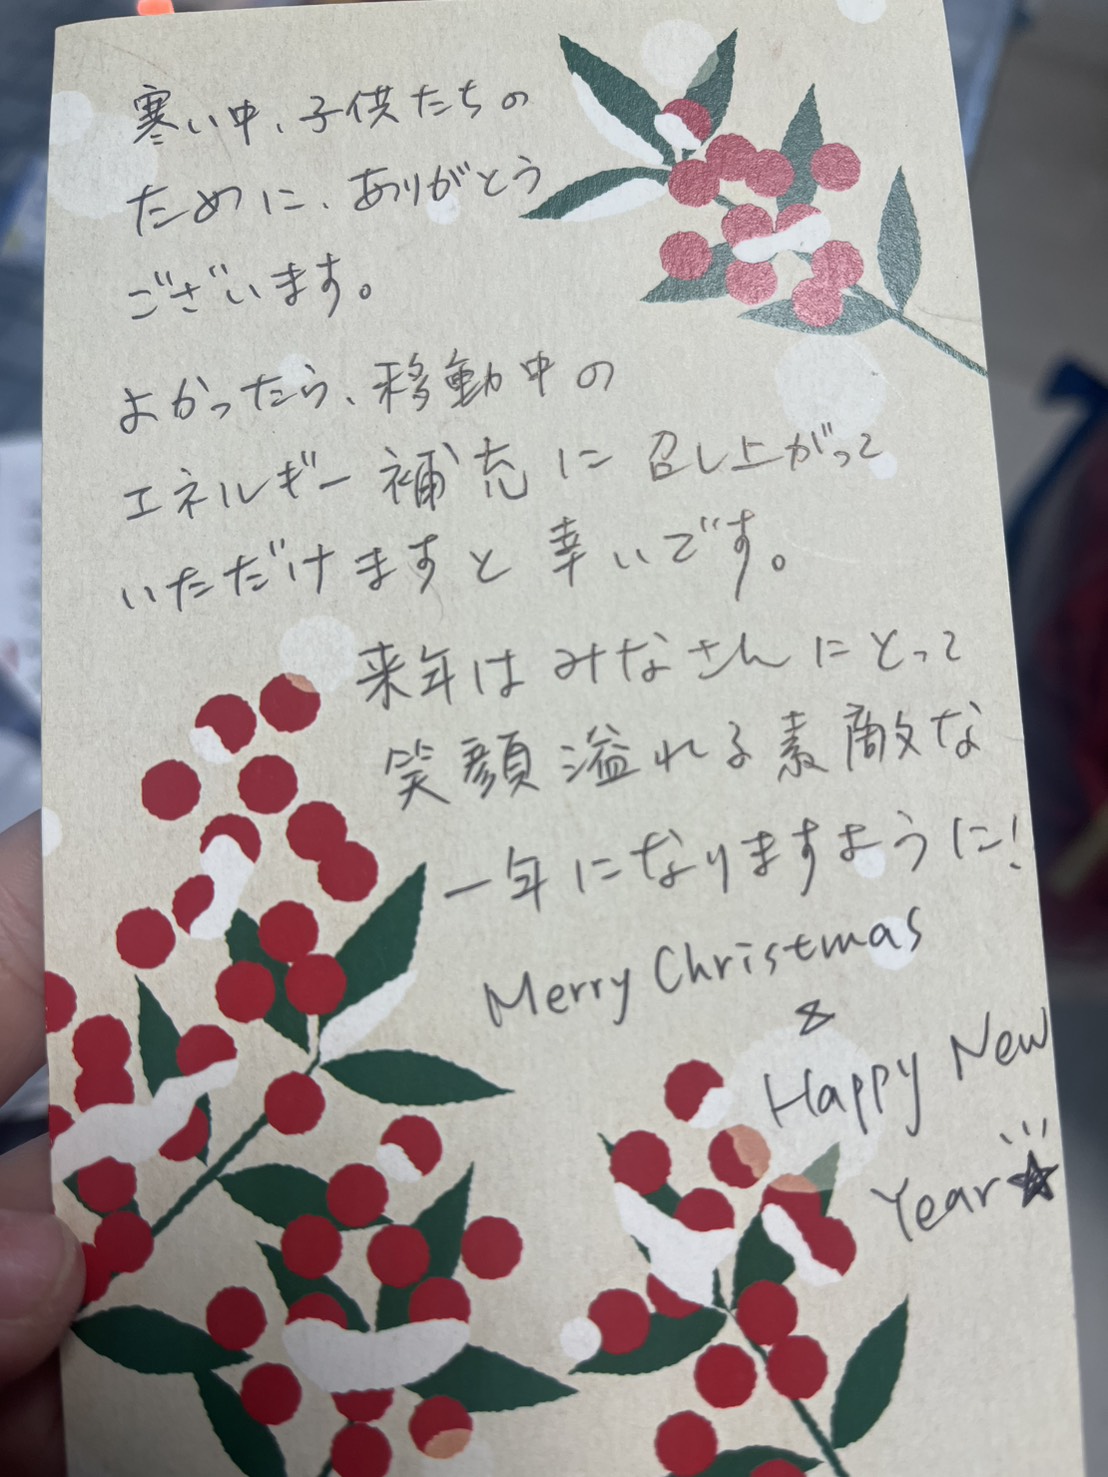 寒い中、子供たちの
ために、ありがとう
ございます。
よかったら、移動中の
エネルギー補充に召し上がって
いただけますと幸いです。
来年はみなさんにとって
笑顔溢れる素敵な
一年になりますように!
Merry Christmas
&
Happy New
Year☆